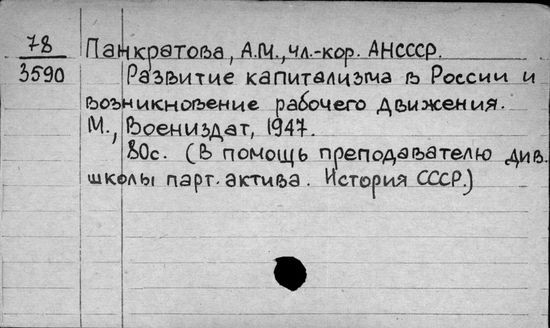 78
3590
Панкратова, А.М., чл.-кор. АНСССР.
Развитие капитализма в России и
возникновение рабочего движения.
М., Воениздат, 1947.
80с. (В помощь преподавателю див.
школы парт. актива. История СССР.)